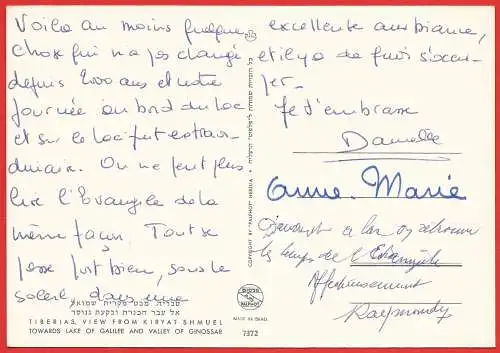 Voila au moins quelque
chose qui n'a pas changé
depuis 2000 ans et notre
journée au bord du lac
et sur le lac fut extraor-
dinaire. On ne peut plus
lire l'Evangile de la
même façon. Tout se
passe fort bien, sous le
soleil, dans une
excellente ambiance,
et il y a de quoi s'occu-
per -
Je t'embrasse
Danielle
Anne-Marie
on retrouve
le temps de l'Evangile
Affectueusement
Raymonde
טבריה, מבט מקרית שמואל
אל עבר הכנרת ובקעת גנוסר
TIBERIAS, VIEW FROM KIRYAT SHMUEL
TOWARDS LAKE OF GALILEE AND VALLEY OF GINOSSAR
COPYRIGHT BY "PALPHOT" HERZLIA
כל הזכויות שמורות ל"פלפוט" הרצליה
PALPHOT
MADE IN ISRAEL
7372